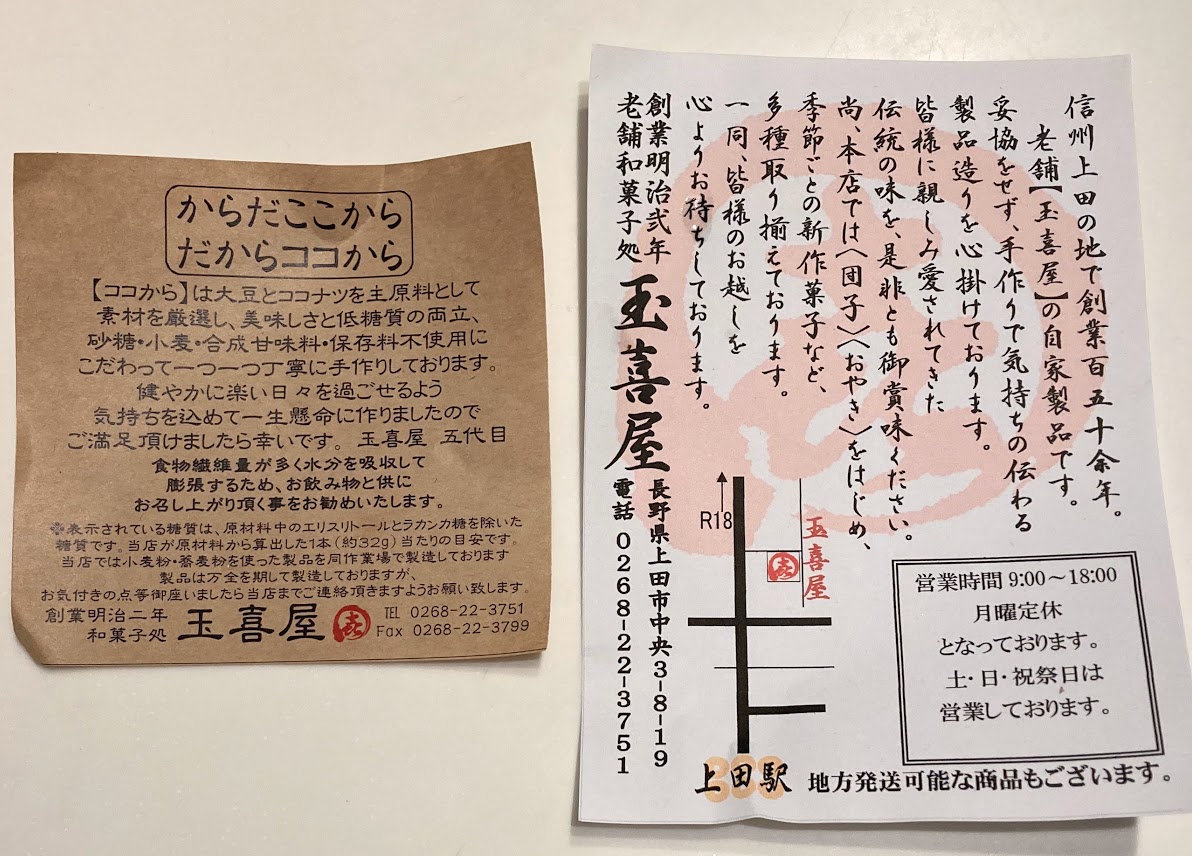 からだここから
だからココから
【ココから】は大豆とココナツを主原料として
素材を厳選し、美味しさと低糖質の両立、
砂糖・小麦・合成甘味料・保存料不使用に
こだわって一つ一つ丁寧に手作りしております。
健やかに楽い日々を過ごせるよう
気持ちを込めて一生懸命に作りましたので
ご満足頂けましたら幸いです。 玉喜屋 五代目
食物繊維量が多く水分を吸収して
膨張するため、お飲み物と供に
お召し上がり頂く事をお勧めいたします。
※表示されている糖質は、原材料中のエリスリトールとラカンカ糖を除いた
糖質です。当店が原材料から算出した1本(約32g)当たりの目安です。
当店では小麦粉・蕎麦粉を使った製品を同作業場で製造しております
製品は万全を期して製造しておりますが、
お気付きの点等御座いましたら当店までご連絡頂きますようお願い致します。
創業明治二年
和菓子処 玉喜屋 㐂
TEL 0268-22-3751
Fax 0268-22-3799
信州上田の地で創業百五十余年。
老舗【玉喜屋】の自家製品です。
妥協をせず、手作りで気持ちの伝わる
製品造りを心掛けております。
皆様に親しみ愛されてきた
伝統の味を、是非とも御賞味ください。
尚、本店では〈団子〉〈おやき〉をはじめ、
季節ごとの新作菓子など、
多種取り揃えております。
一同、皆様のお越しを
心よりお待ちしております。
創業明治弐年
老舗和菓子処
玉喜屋
長野県上田市中央3-8-19
電話 0268-22-3751
R18
玉喜屋
㐂
上田駅
営業時間 9:00～18:00
月曜定休
となっております。
土・日・祝祭日は
営業しております。
地方発送可能な商品もございます。